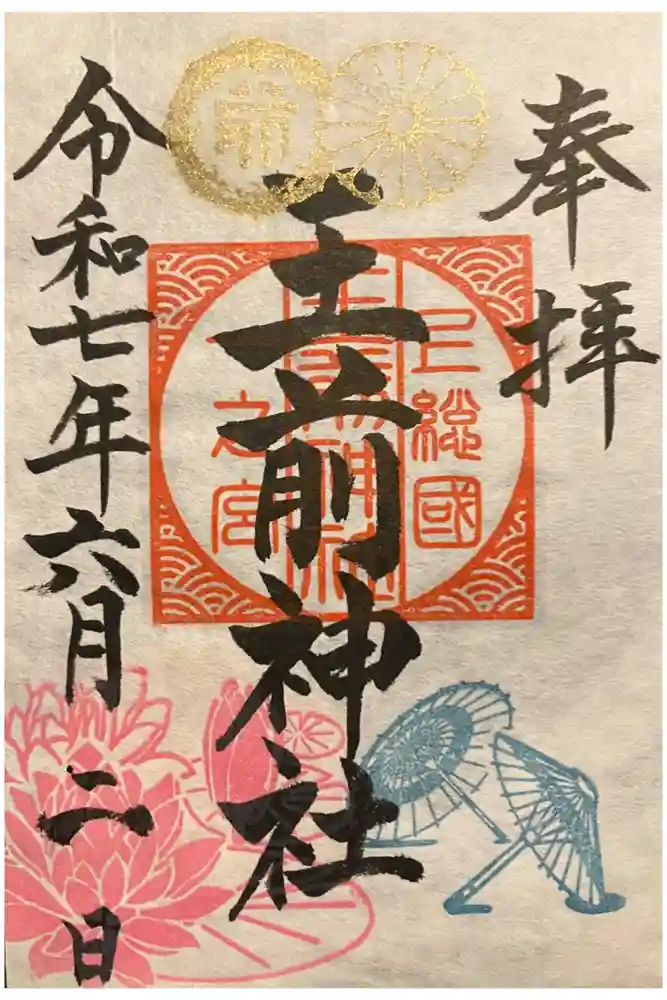 奉拝
上総國
玉前神社
一之宮
玉前神社
令和七年六月二日